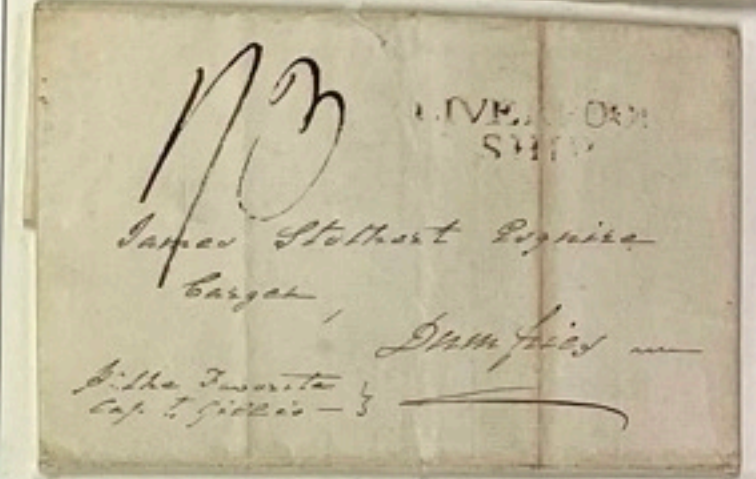 1/3
LIVERPOOL
SHIP
James Stothert Esquire
Cargen,
Dumfries
P. the Favorite
Cap. t. Gillies